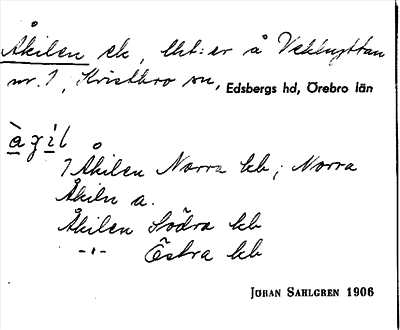 Åkilen ek, lht:er å Vekhyttan
nr. 1, Kvistbro sn, Edsbergs hd, Örebro län
àgìl
1 Åkilen Norra hb; Norra
Åkiln a.
Åkilen Södra hb
-"- Östra hb
JÖRAN SAHLGREN 1906